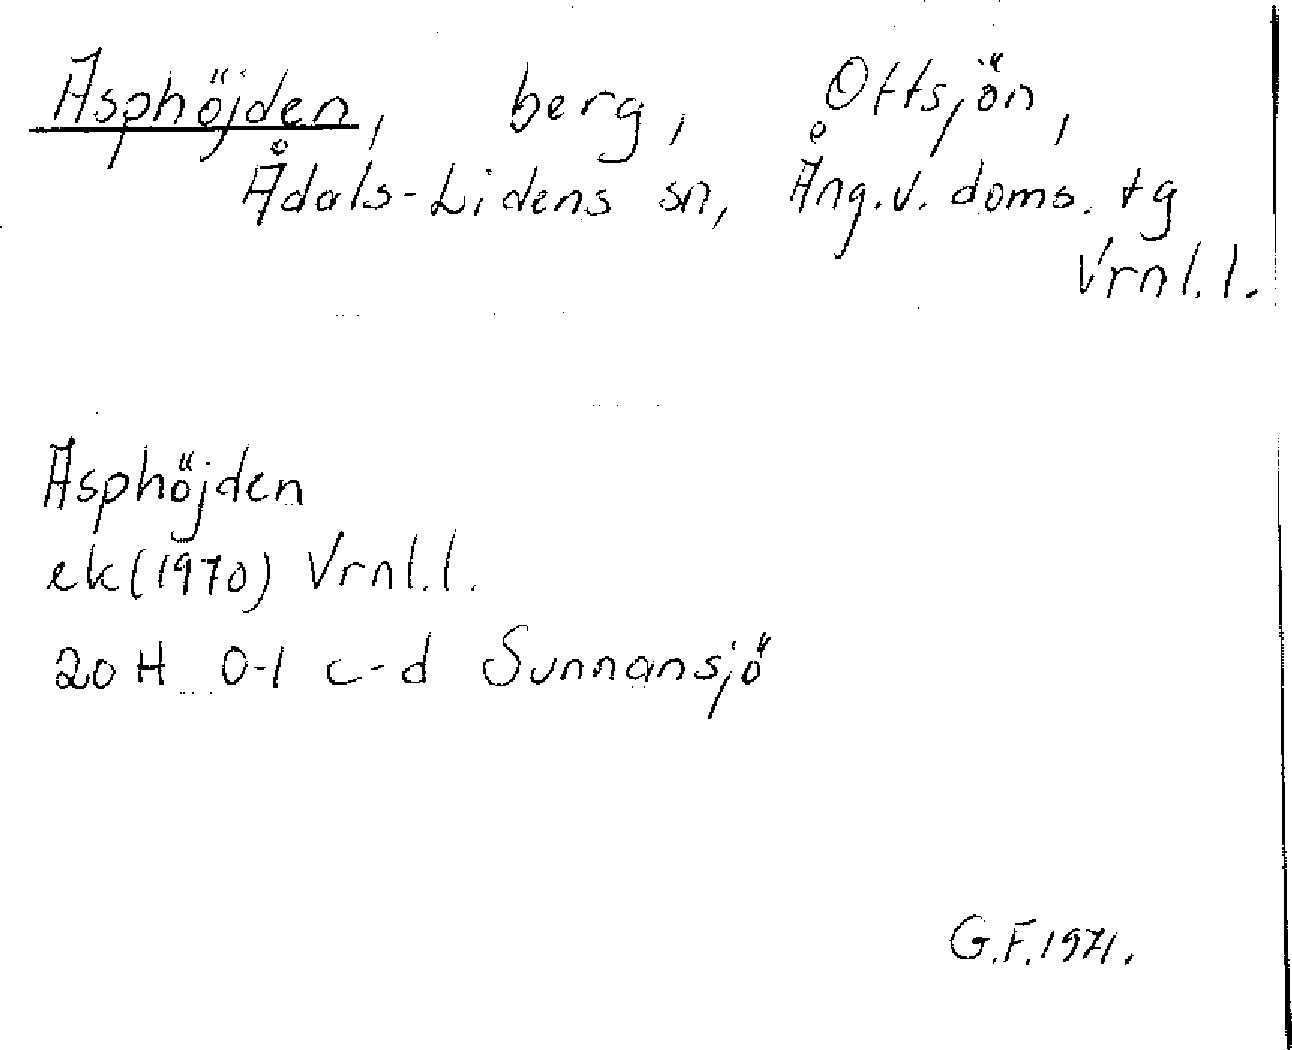 Asphöjden, berg, Ottsjön,
Ådals-Lidens sn, Ång.v. doms. tg
Vrnl.l.
Asphöjden
ek(1970) Vrnl.l.
20 H 0-1 c-d Sunnansjö
G.F.1971.